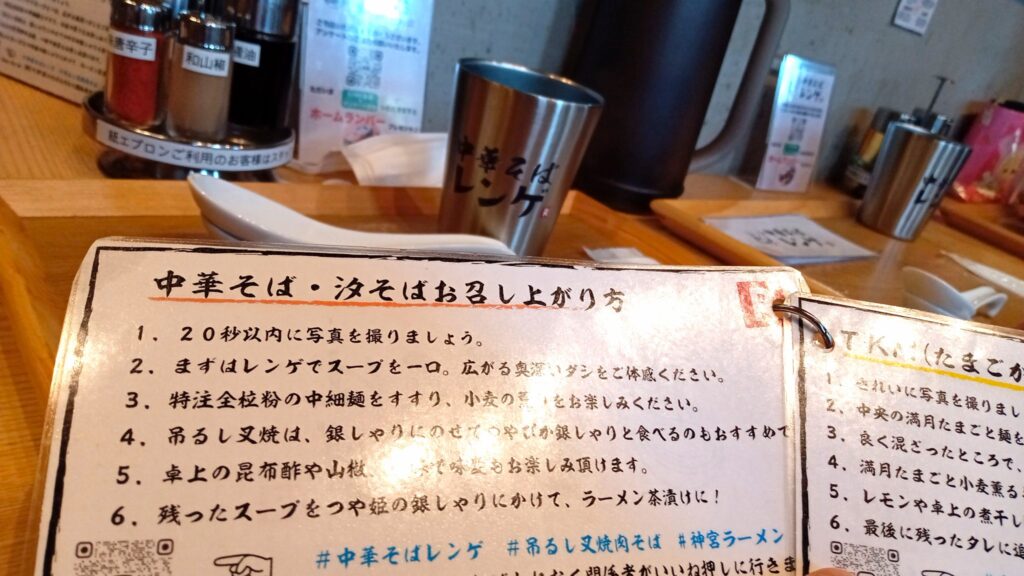 唐辛子
和山椒
醤油
紙エプロンご利用のお客様はスタ
ホームランバー
中華そば
レンゲ
中華そば・汐そばお召し上がり方
1．20秒以内に写真を撮りましょう。
2．まずはレンゲでスープを一口。広がる奥深いダシをご体感ください。
3．特注全粒粉の中細麺をすすり、小麦の をお楽しみください。
4．吊るし叉焼は、銀しゃりにのせてつやぴか銀しゃりと食べるのもおすすめで
5．卓上の昆布酢や山椒、 味変もお楽しみ頂けます。
6．残ったスープをつや姫の銀しゃりにかけて、ラーメン茶漬けに！
#中華そばレンゲ #吊るし叉焼肉そば #神宮ラーメン
関係者がいいね押しに行きま
TKM(たまごか
1．きれいに写真を撮りまし
2．中央の満月たまごと麺を
3．良く混ざったところで、
4．満月たまごと小麦薫る
5．レモンや卓上の煮干し
6．最後に残ったタレに追